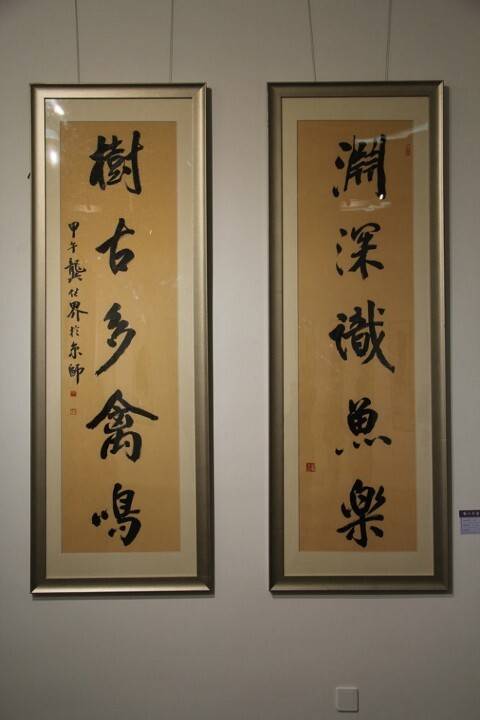 淵深識魚樂
樹古多禽鳴
甲午龔仕界於京師